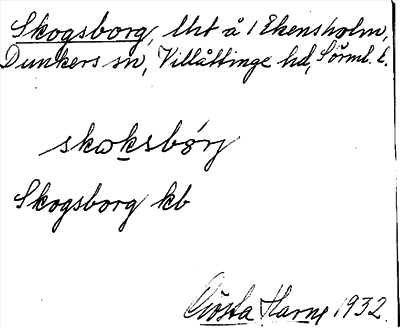 Skogsborg, lht å 1 Ekensholm,
Dunkers sn, Villåttinge hd, Sörml. l.
skωksbórj
Skogsborg kb
Gösta Harne 1932